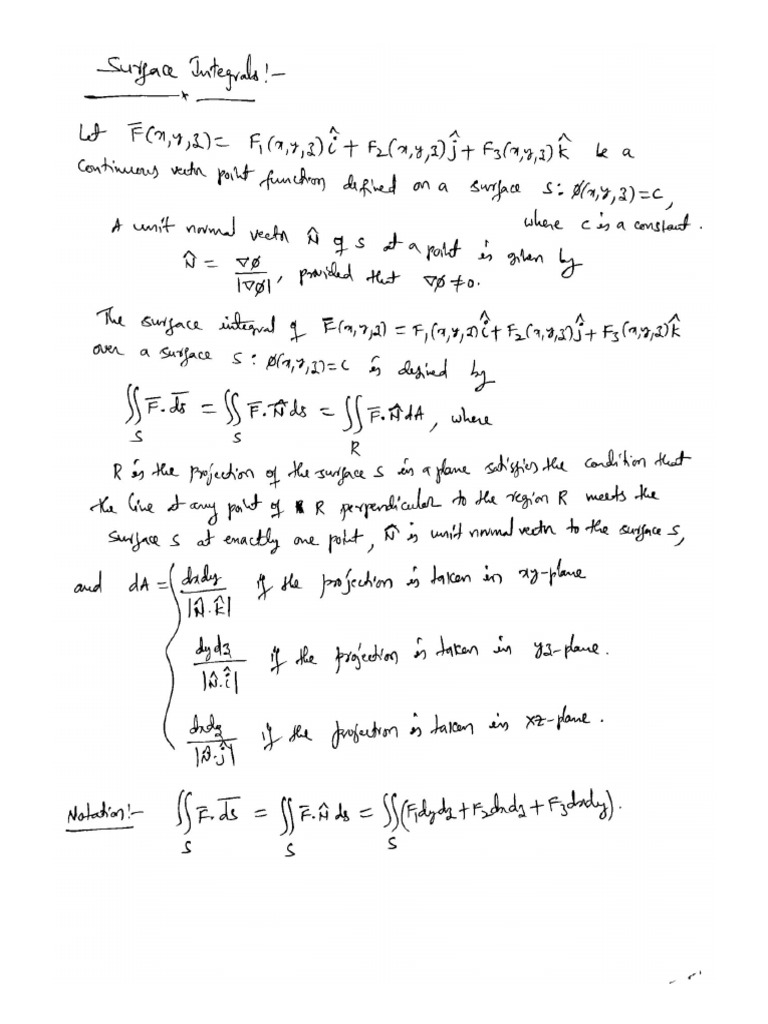 Surface Integrals:-
Let F̄(x,y,z) = F₁(x,y,z)î + F₂(x,y,z)ĵ + F₃(x,y,z)k̂ be a
continuous vector point function defined on a surface S: ø(x,y,z)=c,
where c is a constant.
A unit normal vector N̂ of S at a point is given by
N̂ = ∇ø/|∇ø|, provided that ∇ø≠0.
The surface integral of F̄(x,y,z) = F₁(x,y,z)î + F₂(x,y,z)ĵ + F₃(x,y,z)k̂
over a surface S: ø(x,y,z)=c is defined by
∬_S F̄.d̄s̄ = ∬_S F̄.N̂ ds = ∬_R F̄.N̂ dA, where
R is the projection of the surface S in a plane satisfies the condition that
the line at any point of R perpendicular to the region R meets the
surface S at exactly one point, N̂ is unit normal vector to the surface S,
and dA = { dxdy/|N̂.k̂| if the projection is taken in xy-plane
dydz/|N̂.î| if the projection is taken in yz-plane.
dxdz/|N̂.ĵ| if the projection is taken in xz-plane.
Notation:- ∬_S F̄.d̄s̄ = ∬_S F̄.N̂ ds = ∬_S (F₁dydz + F₂dxdz + F₃dxdy).